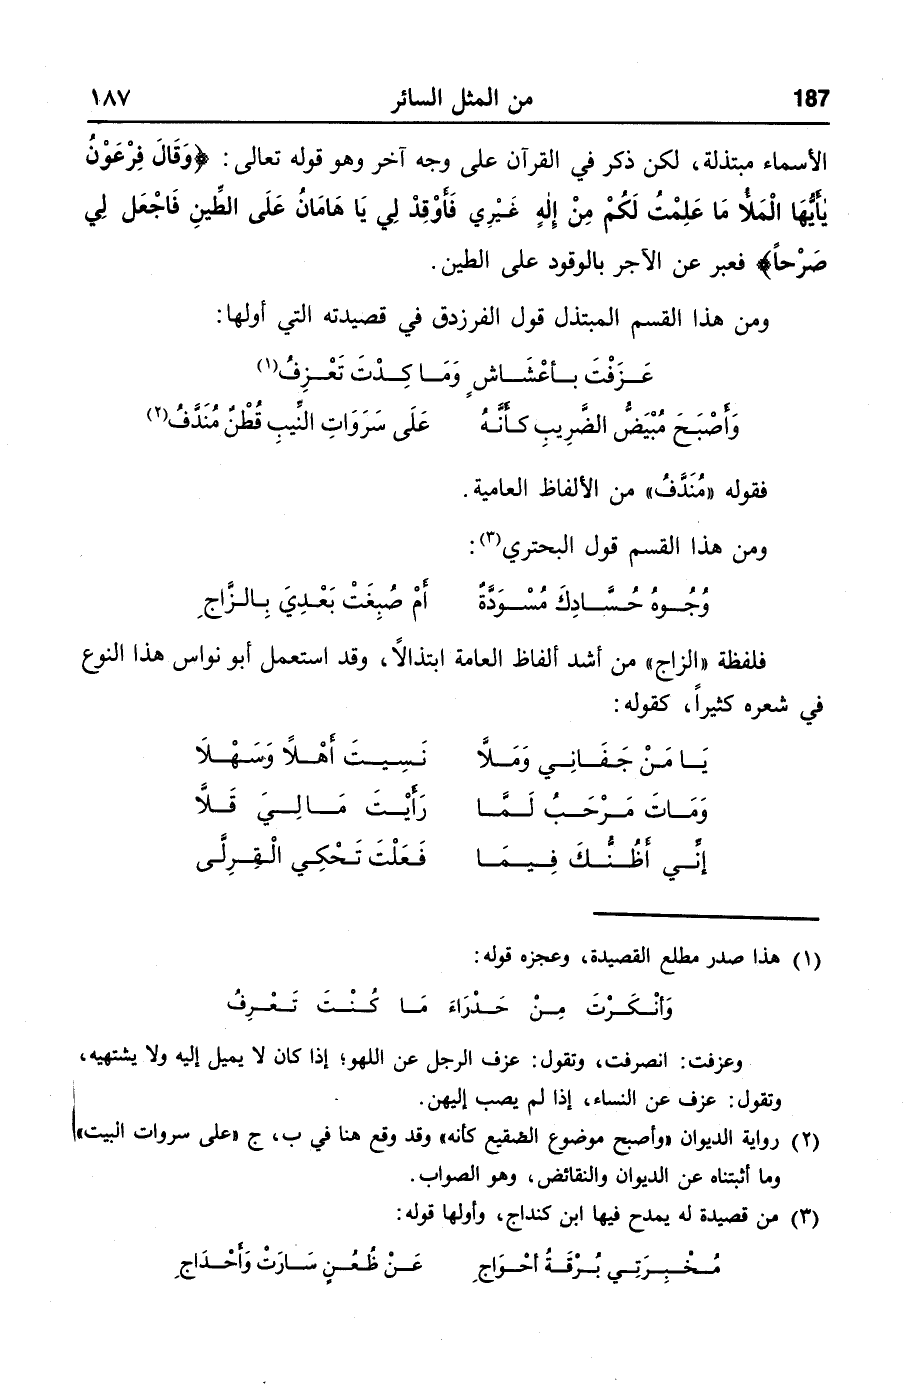 187 من المثل السائر ١٨٧
الأسماء مبتذلة، لكن ذكر في القرآن على وجه آخر وهو قوله تعالى: ﴿وَقَالَ فِرْعَوْنُ
يٰأَيُّهَا الْمَلأُ مَا عَلِمْتُ لَكُمْ مِنْ إِلٰهٍ غَيْرِي فَأَوْقِدْ لِي يَا هَامَانُ عَلَى الطِّينِ فَاجْعَل لِي
صَرْحاً﴾ فعبر عن الآجر بالوقود على الطين.
ومن هذا القسم المبتذل قول الفرزدق في قصيدته التي أولها:
عَزَفْتَ بِأَعْشَاشٍ وَمَا كِدْتَ تَعْزِفُ(١)
وَأَصْبَحَ مُبْيَضُّ الضَّرِيبِ كَأَنَّهُ عَلَى سَرَوَاتِ النِّيبِ قُطْنٌ مُنَدَّفُ(٢)
فقوله «مُنَدَّفُ» من الألفاظ العامية.
ومن هذا القسم قول البحتري(٣):
وُجُوهُ حُسَّادِكَ مُسْوَدَّةٌ أَمْ صُبِغَتْ بَعْدِيَ بِالزَّاجِ
فلفظة «الزاج» من أشد ألفاظ العامة ابتذالاً، وقد استعمل أبو نواس هذا النوع
في شعره كثيراً، كقوله:
يَا مَنْ جَفَانِي وَمَلاَّ نَسِيتَ أَهْلاً وَسَهْلاَ
وَمَاتَ مَرْحَبُ لَمَّا رَأَيْتَ مَالِيَ قَلاَّ
إنِّي أَظُنُّكَ فِيمَا فَعَلْتَ تَحْكِي الْقِرِلَّى
(١) هذا صدر مطلع القصيدة، وعجزه قوله:
وَأَنْكَرْتَ مِنْ حَدْرَاءَ مَا كُنْتَ تَعْرِفُ
وعزفت: انصرفت، وتقول: عزف الرجل عن اللهو؛ إذا كان لا يميل إليه ولا يشتهيه،
وتقول: عزف عن النساء، إذا لم يصب إليهن.
(٢) رواية الديوان «وأصبح موضوع الصقيع كأنه» وقد وقع هنا في ب، ج «على سروات البيت»
وما أثبتناه عن الديوان والنقائض، وهو الصواب.
(٣) من قصيدة له يمدح فيها ابن كنداج، وأولها قوله:
مُخْبِرَتِي بُرْقَةُ أحْوَاجِ عَنْ ظُعُنٍ سَارَتْ وَأَحْدَاجِ